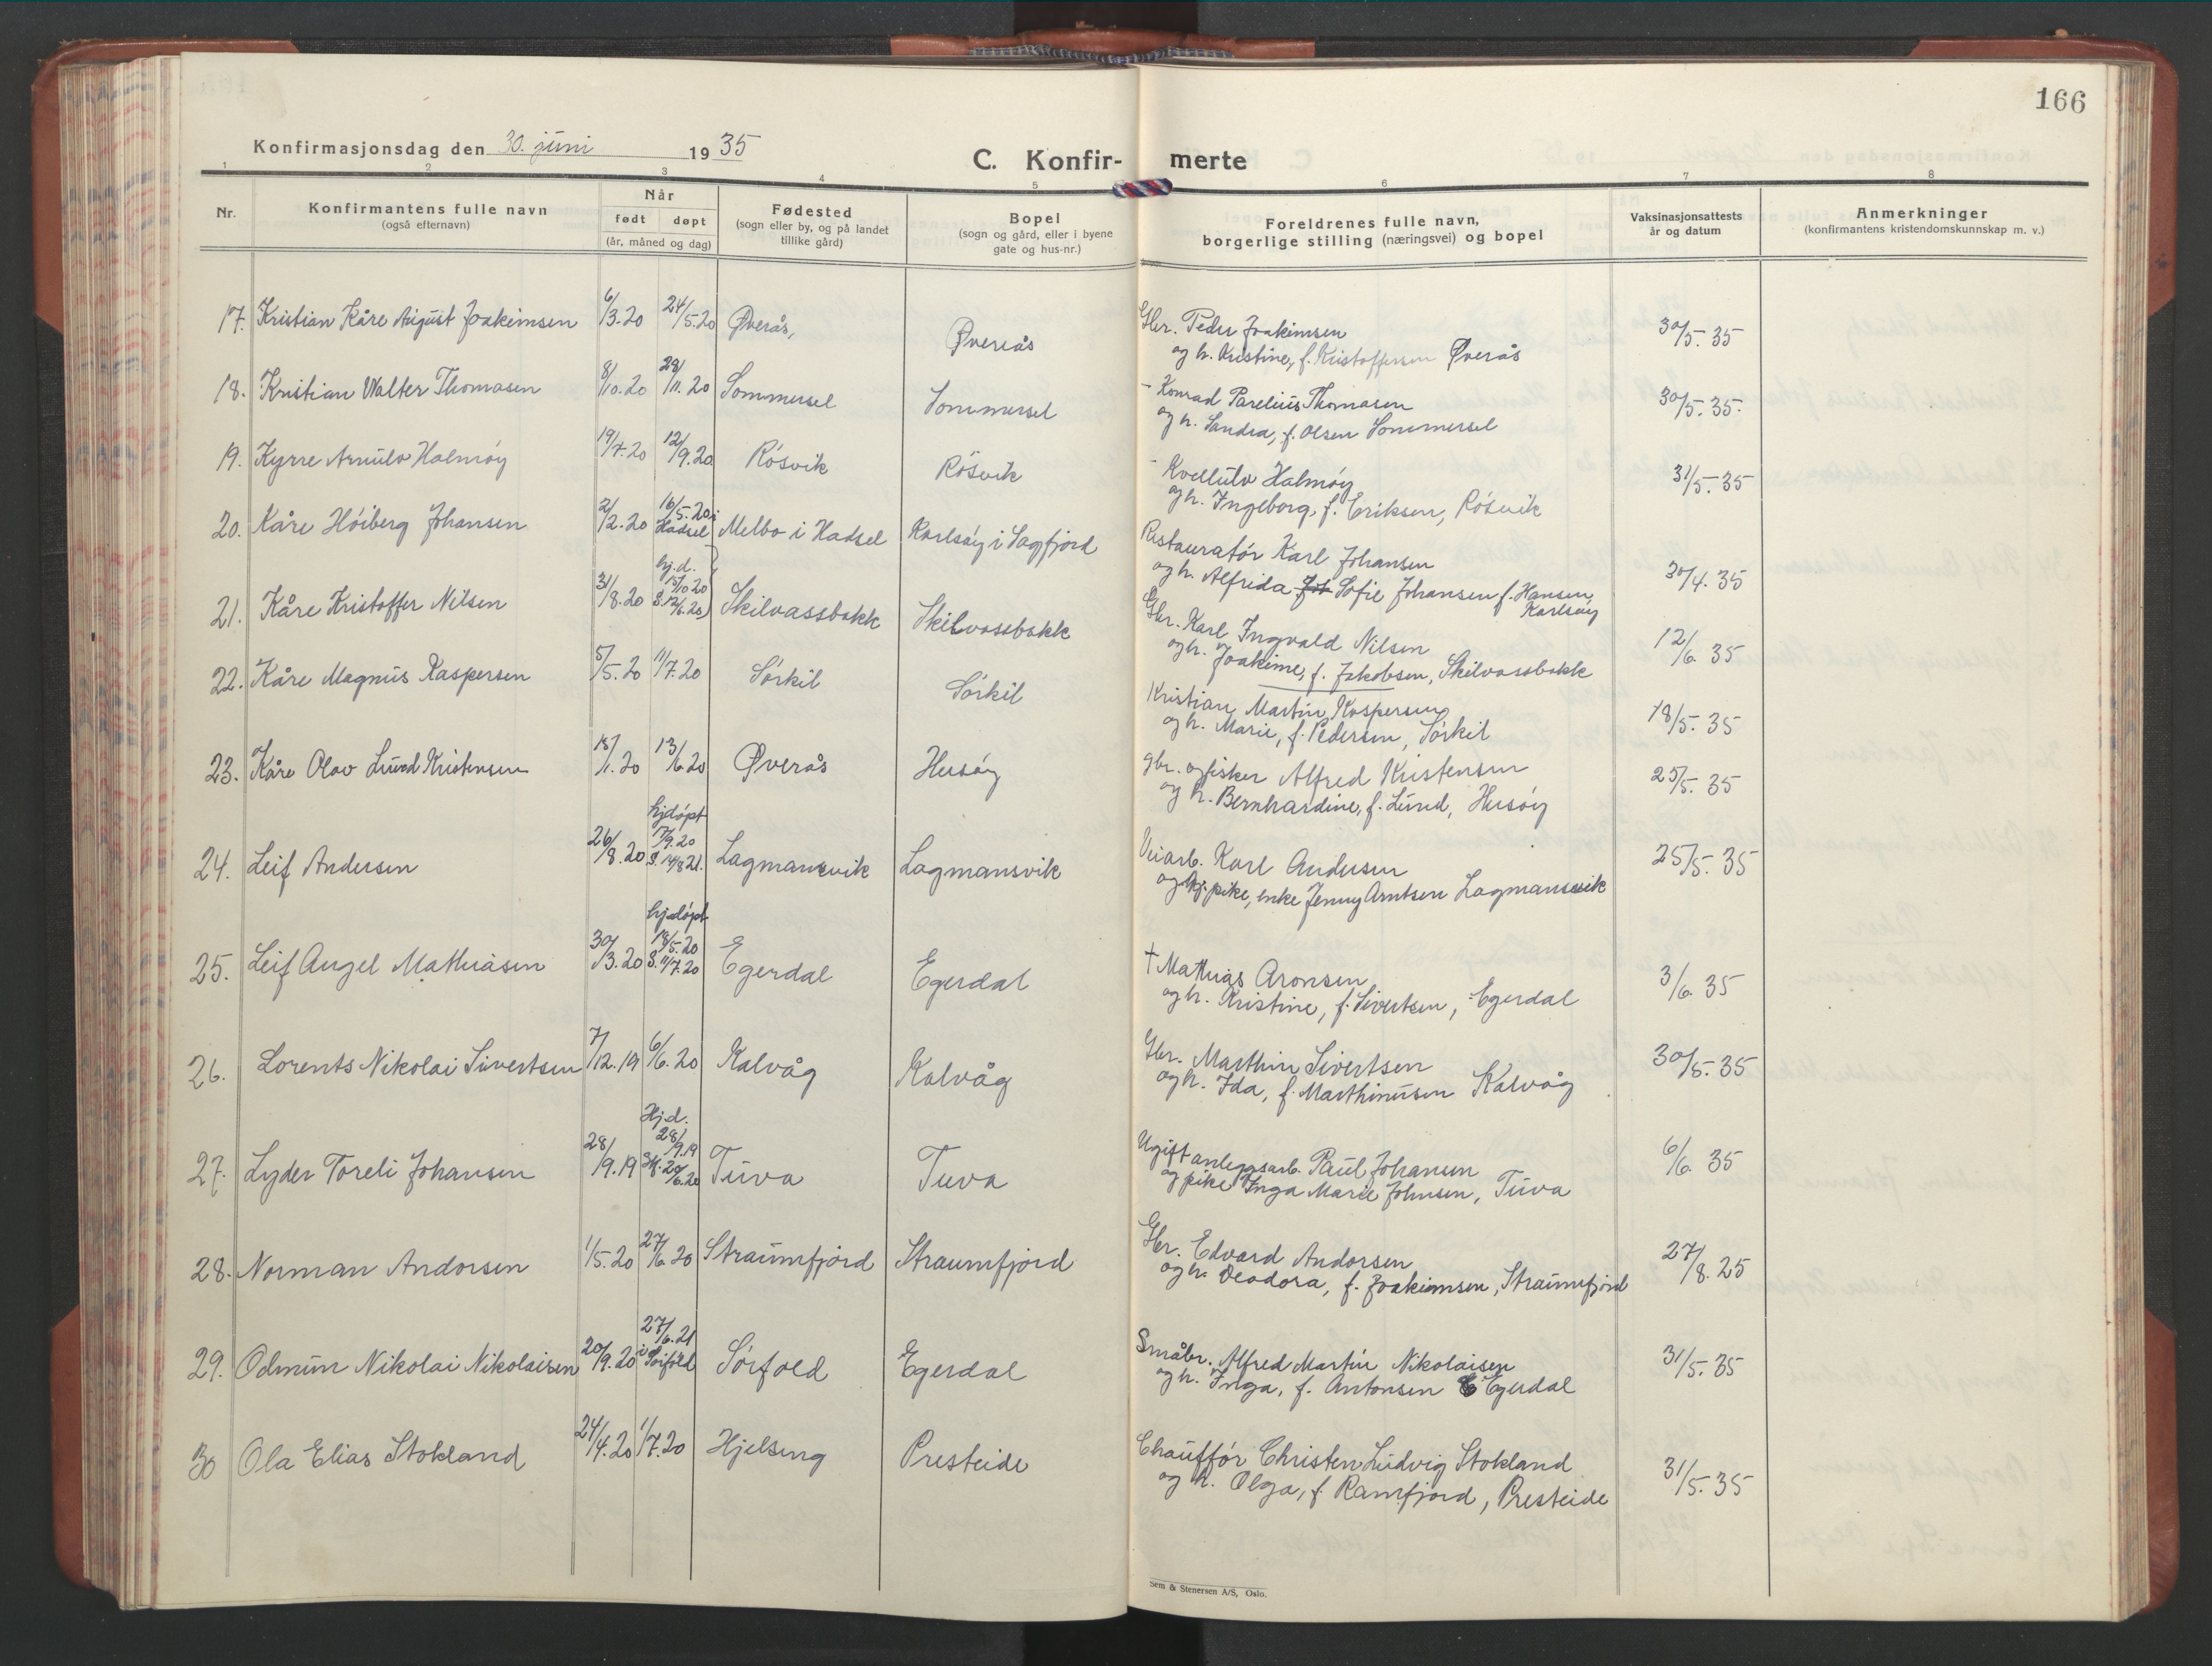 166
Konfirmasjonsdag den 30. juni 1935
C. Konfir- merte
1 2 3 4 5 6 7 8
Nr.
Konfirmantens fulle navn
(også efternavn)
Når
født døpt
(år, måned og dag)
Fødested
(sogn eller by, og på landet
tillike gård)
Bopel
(sogn og gård, eller i byene
gate og hus-nr.)
Foreldrenes fulle navn,
borgerlige stilling (næringsvei) og bopel
Vaksinasjonsattests
år og datum
Anmerkninger
(konfirmantens kristendomskunnskap m. v.)
17. Kristian Kåre August Joakimsen 6/3.20 24/5.20 Øverås, Øverås Gbr. Peder Joakimsen 30/5.35
og h. Kristine, f. Kristoffersen Øverås
18. Kristian Walter Thomasen 8/10.20 28/11.20 Sommersel Sommersel - Konrad Parelius Thomasen 30/5.35.
og h. Sandra, f. Olsen Sommersel
19. Kyrre Arnulv Halmøy 19/7.20 12/9.20 Røsvik Røsvik - Kvellulv Halmøy 31/5.35
og h. Ingeborg, f. Eriksen, Røsvik
20. Kåre Høiberg Johansen 2/2.20 16/5.20 i Hadsel Melbo i Hadsel Karlsøy i Sagfjord Restauratør Karl Johansen 30/4.35
og h. Alfrida Sofie Johansen f. Hansen,
Karlsøy
21. Kåre Kristoffer Nilsen 31/8.20 hj.d. 15/10 20 Skilvassbakk Skilvassbakk Gbr. Karl Ingvald Nilsen 12/6.35
og h. Joakime, f. Jakobsen, Skilvassbakk
22. Kåre Magnus Kaspersen 5/5.20 11/7.20 Sørkil Sørkil Kristian Martin Kaspersen 18/5.35
og h. Marie, f. Pedersen, Sørkil
23. Kåre Olav Lund Kristensen 18/1.20 13/6.20 Øverås Husøy gbr. og fisker Alfred Kristensen 25/5.35
og h. Bernhardine, f. Lund, Husøy
24. Leif Andersen 26/8.20 hjdøpt 17/9.20 S. 14/8 21. Lagmansvik Lagmansvik Veiarb. Karl Andersen 25/5.35
og pike, enke Jenny Arntsen Lagmansvik
25. Leif Angel Mathiasen 30/3.20 hjdøpt 18/5.20 S. 11/7.20 Egerdal Egerdal † Mathias Aronsen 3/6.35
og h. Kristine, f. Sivertsen, Egerdal
26. Lorents Nikolai Sivertsen 7/12.19 6/6.20 Kalvåg Kalvåg Gbr. Marthin Sivertsen 30/5.35
og h. Ida, f. Marthinusen Kalvåg
27. Lyder Toreli Johansen 28/9.19 Hj.d. 28/9.19 St. 20/6.20 Tuva Tuva Ugift anleggsarb. Paul Johansen 6/6.35
og pike Inga Marie Johnsen, Tuva
28. Norman Andorsen 1/5.20 27/6.20 Straumfjord Straumfjord Gbr. Edvard Andorsen 27/8.25
og h. Deodora, f. Joakimsen, Straumfjord
29. Odmun Nikolai Nikolaisen 20/9.20 27/6.21 i Sørfold Sørfold Egerdal Småbr. Alfred Martin Nikolaisen 31/5.35
og h. Inga, f. Antonsen Egerdal
30 Ola Elias Stokland 24/4.20 1/7.20 Hjelseng Presteide Chauffør Christen Ludvig Stokland 31/5.35
og h. Olga, f. Ramfjord, Presteide
Sem & Stenersen A/S, Oslo.